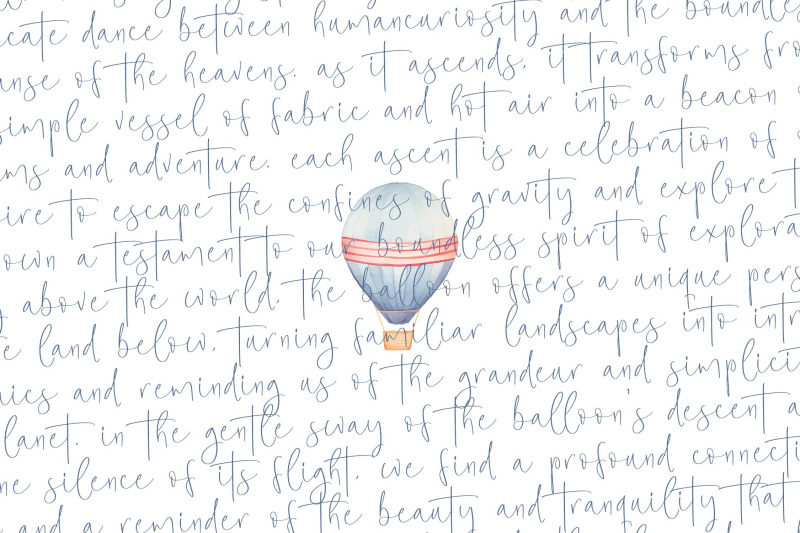 cate dance between humancuriosity and the boundless
anse of the heavens. as it ascends, it transforms fro
simple vessel of fabric and hot air into a beacon
ms and adventure. each ascent is a celebration of
ire to escape the confines of gravity and explore t
own a testament to our boundless spirit of explora
above the world, the balloon offers a unique pers
e land below, turning familiar landscapes into intr
ics and reminding us of the grandeur and simplici
lanet. in the gentle sway of the balloon's descent a
he silence of its flight, we find a profound connecti
and a reminder of the beauty and tranquility that